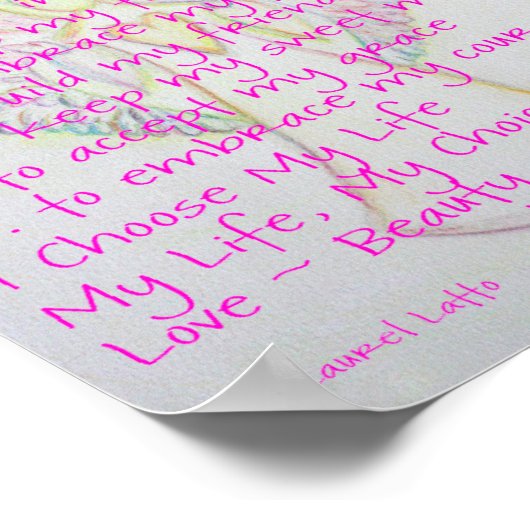 embrace my
build my friend
keep my sweet m
to accept my grace
. to embrace my cour
I Choose My Life
My Life, My Choi
Love ~ Beauty
Laurel Latto